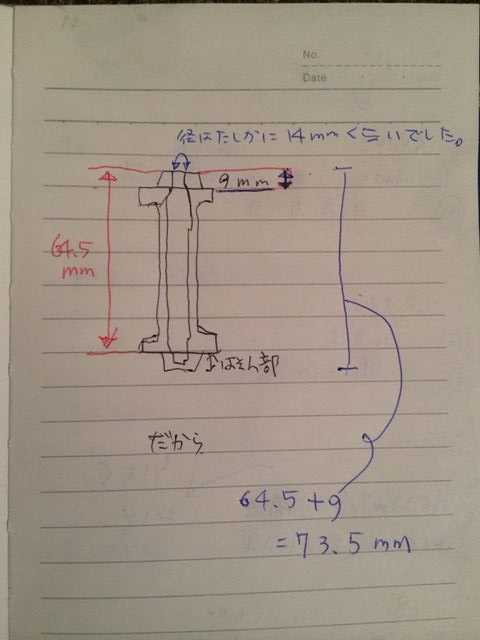 No.
Date
径はたしかに14mmくらいでした。
9mm
64.5
mm
はそん部
だから
64.5+9
=73.5mm